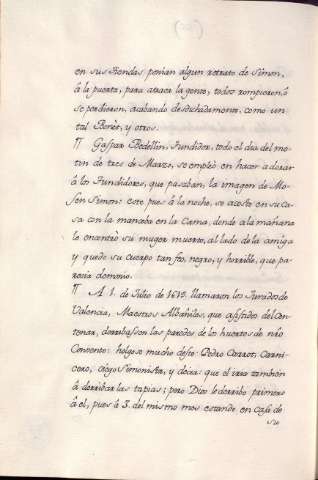 en sus tiendas ponian algun retrato de Simon,
á la puerta, para atraer la gente, todos rompieron, ó
se perdieron, acabando desdichadamente, como un
tal Borèr, y otros.
¶ Gaspar Bedellin, Fundidor, todo el dia del mo-
tin de tres de Marzo, se empleó en hacer adorar
à los Fundidores, que pasaban, la imagen de Mo-
sen Simon: este pues à la noche, se acostó en su ca-
sa con la manceba en la Cama, donde à la mañana
le encontró su muger muerto, al lado de la amiga
y quedo su cuerpo tan feo, negro, y horrible, que pa-
recia demonio.
¶ A 1. de Julio de 1619. llamaron los Jurados de
Valencia, Maestros Albañiles, que asistidos del Cen-
tenar, derribassen las paredes de los huertos de nro
Convento: holgose mucho desto Pedro Carrot, Carni-
cero, ciego Simonista, y decia: que el iria tambien
à derribar las tapias; pero Dios le derribó primero
à el, pues à 3. del mismo mes estando en Casa de
su